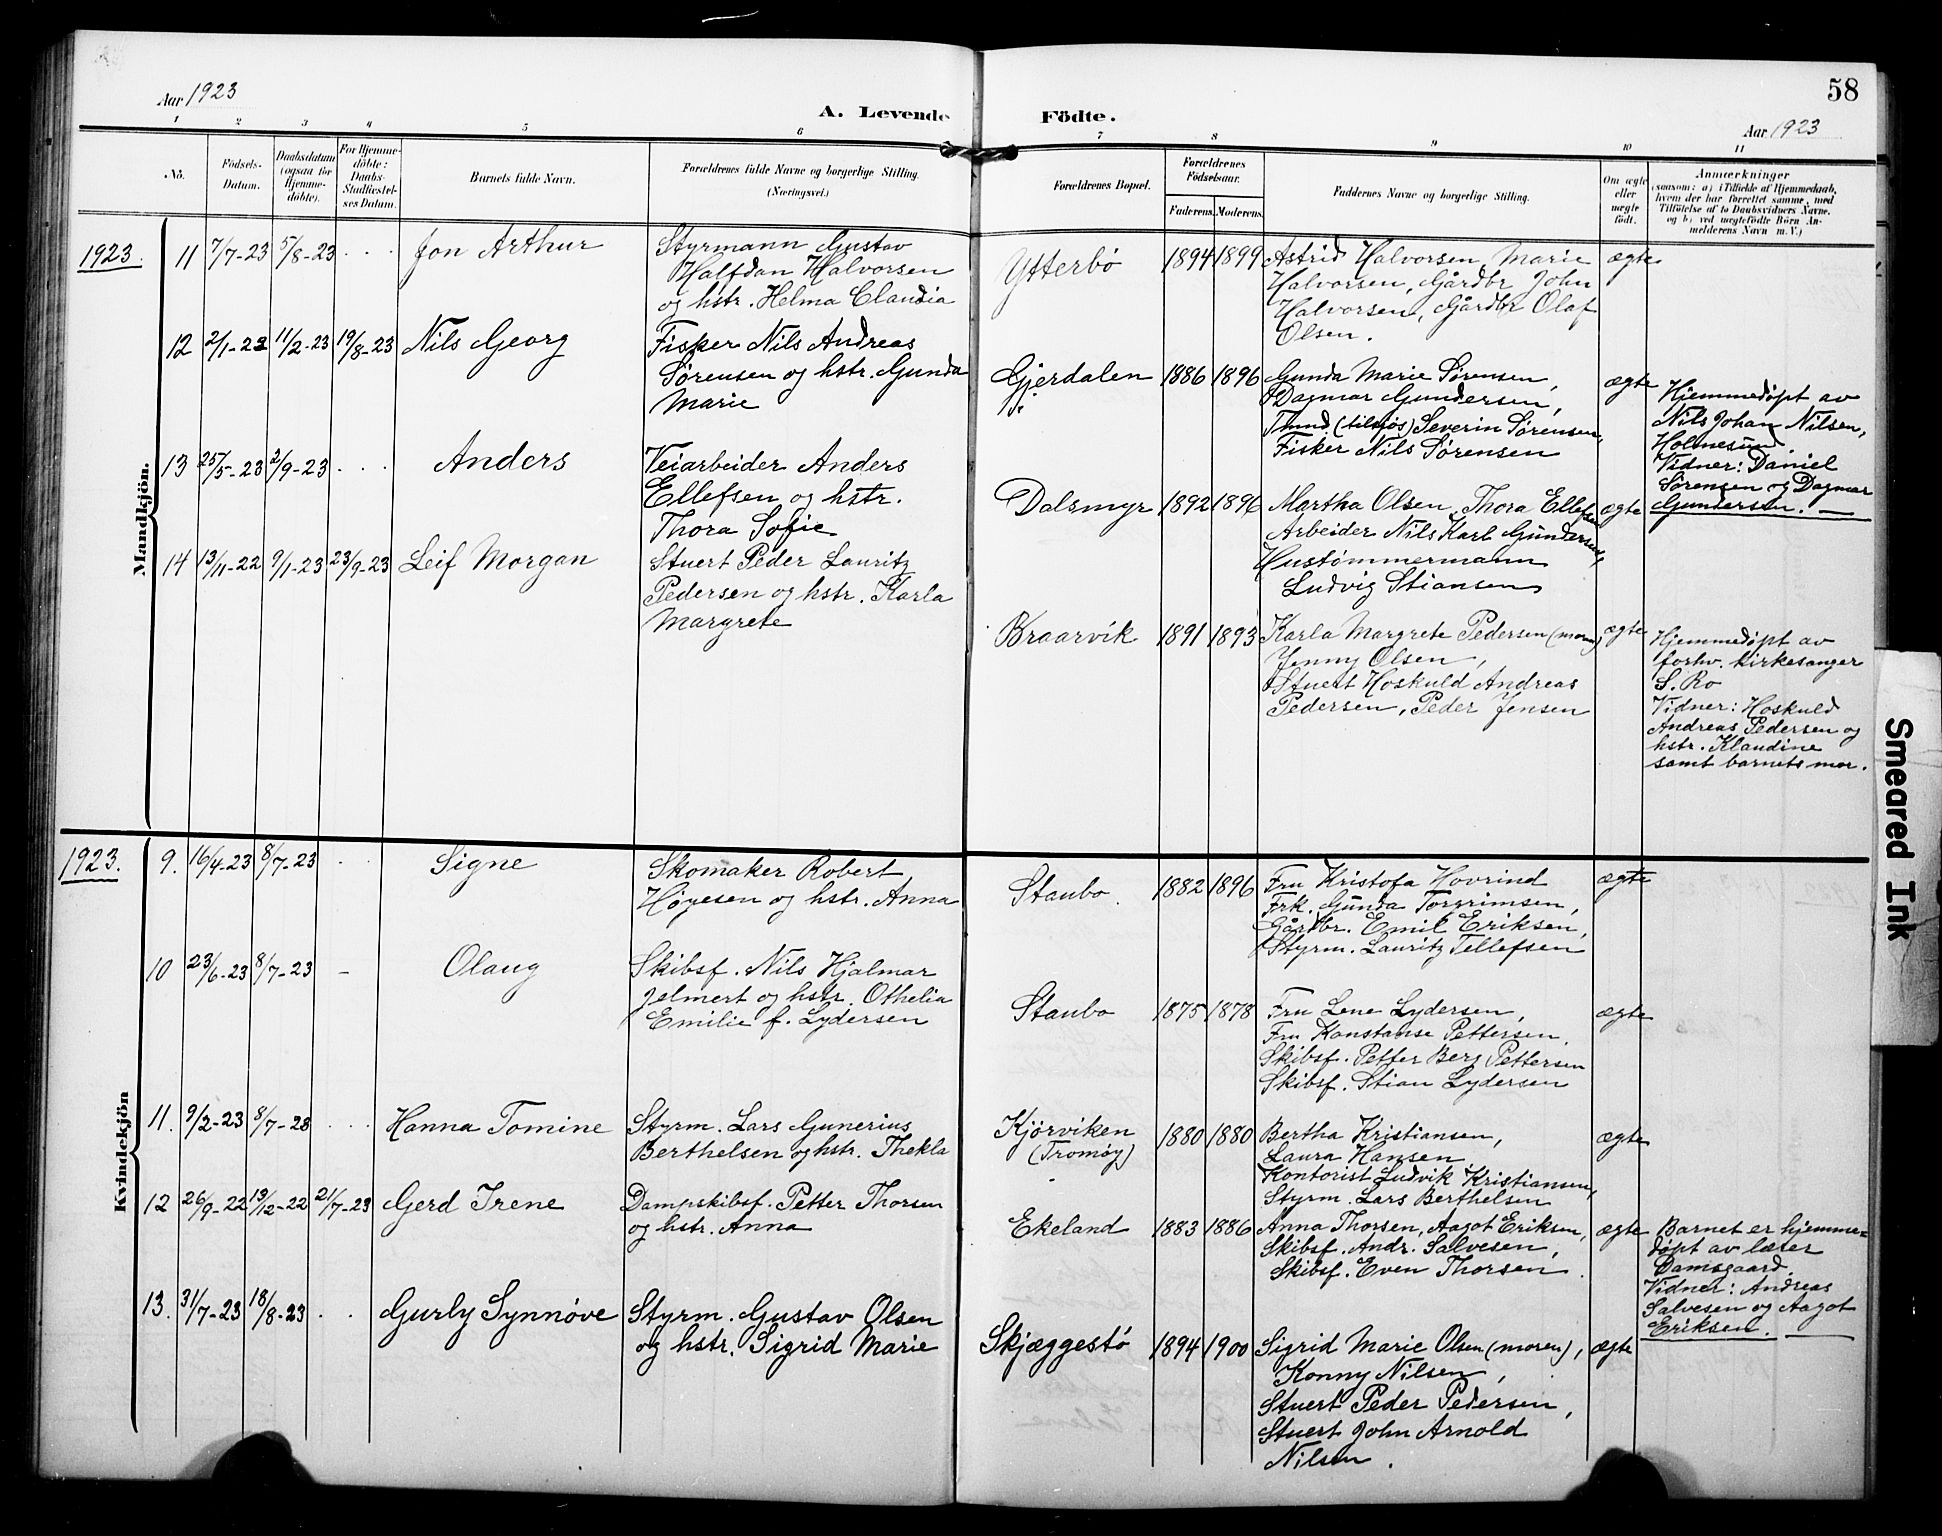 58
Aar 1923
A. Levende Födte.
Aar 1923
1 2 3 4 5 6 7 8 9 10 11
No.
Födsels-
Datum.
Daabsdatum
(ogsaa for
Hjemme-
döbte).
For Hjemme-
döbte:
Daabs-
Stadfæstel-
ses Datum.
Barnets fulde Navn.
Forældrenes fulde Navne og borgerlige Stilling.
(Næringsvei.)
Forældrenes Bopæl.
Forældrenes
Födselsaar.
Faderens. Moderens.
Faddernes Navne og borgerlige Stilling.
Om ægte
eller
uægte
födt.
Anmærkninger
(saasom: a) i Tilfælde af Hjemmedaab,
hvem der har forrettet samme, med
Tilföielse af to Daabsvidners Navne.
og b) ved uægtefödte Börn An-
melderens Navn m. V.)
Mandkjön.
1923. 11 7/7-23 5/8-23 . . . Jon Arthur
Styrmann Gustav
Halfdan Halvorsen
og hstr. Helma Claudia
Ytterbö 1894 1899
Astrid Halvorsen, Marie
Halvorsen, Gårdbr John
Halvorsen, Gårdbr Olaf
Olsen.
ægte
12 2/1-23 11/2-23 19/8-23 Nils Georg
Fisker Nils Andreas
Sørensen og hstr. Gunda
Marie
Gjerdalen 1886 1896
Gunda Marie Sørensen,
Dagmar Gundersen,
(tilsjøs) Severin Sørensen,
Fisker Nils Sørensen
ægte
Hjemmedøpt av
Nils Johan Nilsen,
Holmesund
Vidner: Daniel
Sørensen og Dagmar
Gundersen. —
13 25/5-23 2/9-23 . . . Anders
Veiarbeider Anders
Ellefsen og hstr.
Thora Sofie
Dalsmyr 1892 1896
Martha Olsen, Thora Ellefsen
Arbeider Nils Karl Gundersen,
Hustømmermann
Ludvig Stiansen
ægte
14 13/11-22 9/1-23 23/9-23 Leif Morgan
Stuert Peder Lauritz
Pedersen og hstr. Karla
Margrete
Braarvik 1891 1893
Karla Margrete Pedersen (moren)
Jenny Olsen,
Stuert Hoskuld Andreas
Pedersen, Peder Jensen
ægte
Hjemmedøpt av
forhv. kirkesanger
S. Ro
Vidner: Hoskuld
Andreas Pedersen og
hstr. Klaudine
samt barnets mor.
Smeared Ink
Kvindekjön
1923. 9. 16/4-23 8/7-23 . . Signe
Skomaker Robert
Høyesen og hstr. Anna
Staubo. 1882 1896
Fru Kristofa Hovrind
Frk. Gunda Torgrimsen,
Gårdbr. Emil Eriksen,
Styrm. Lauritz Tellefsen
ægte
10 23/6-23 8/7-23 – Olaug
Skibsf. Nils Hjalmar
Jelmert og hstr. Othelia
Emilie f. Lydersen
Staubo 1875 1878
Fru Lene Lydersen,
Fru Konstanse Pettersen,
Skibsf. Petter Berg Pettersen
Skibsf. Stian Lydersen
ægte
11. 9/2-23 8/7-23 . . . Hanna Tomine
Styrm. Lars Gunerius
Berthelsen og hstr. Thekla
Kjørviken
(Tromøy)
1880 1880
Bertha Kristiansen,
Laura Hansen
Kontorist Ludvik Kristiansen,
Styrm. Lars Berthelsen
ægte
12 26/9-22 13/12-22 21/7-23 Gerd Irene
Dampskibsf. Petter Thorsen
og hstr. Anna
Ekeland 1883 1886
Anna Thorsen, Aagot Eriksen,
Skibsf. Andr. Salvesen,
Skibsf. Even Thorsen
ægte
Barnet er hjemme-
døpt av lærer
Damsgaard.
Vidner: Andreas
Salvesen og Aagot
Eriksen. —
13. 31/7-23 18/8-23 . . Gurly Synnøve
Styrm. Gustav Olsen
og hstr. Sigrid Marie
Skjæggestö 1894 1900
Sigrid Marie Olsen (moren),
Konny Nilsen,
Stuert Peder Pedersen,
Stuert John Arnold
Nilsen.
ægte